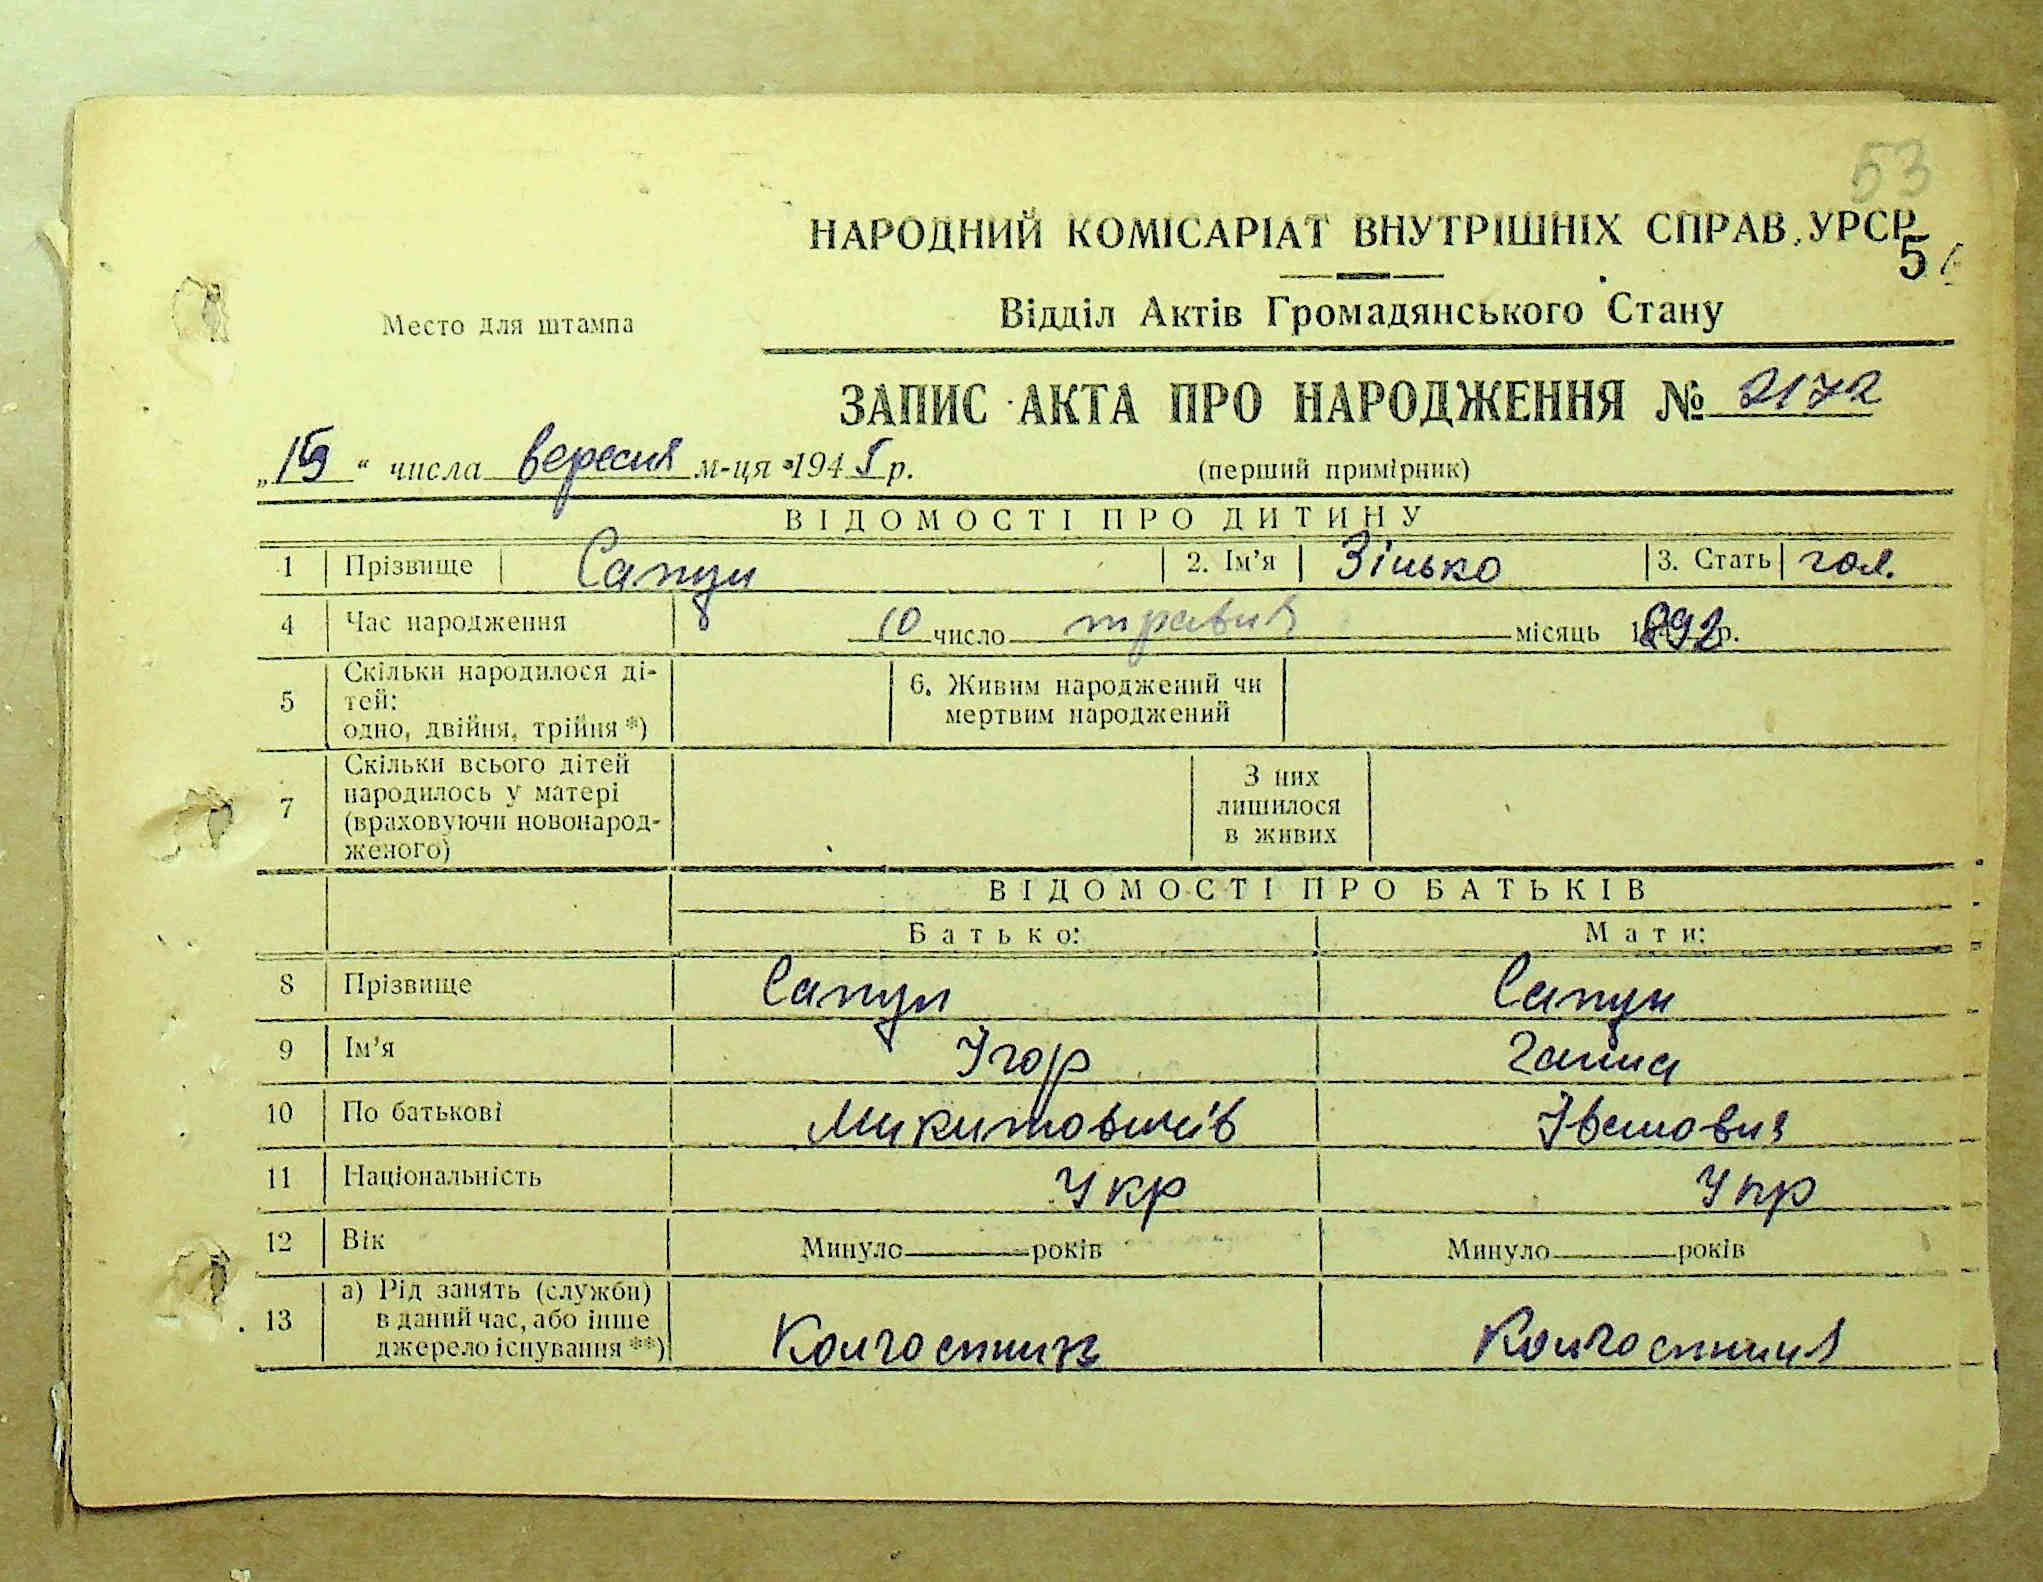 53
НАРОДНИЙ КОМІСАРІАТ ВНУТРІШНІХ СПРАВ УРСР
5
Место для штампа
Відділ Актів Громадянського Стану
ЗАПИС АКТА ПРО НАРОДЖЕННЯ № 2172
" числа вересня м-ця 194 р.
(перший примірник)
ВІДОМОСТІ ПРО ДИТИНУ
1 Прізвище Сапун 2. Ім'я Зінько 3. Стать чол.
4 Час народження 10 число травня місяць 1892 р.
5 Скільки народилося ді-
тей:
одно, двійня, трійня *)
6. Живим народжений чи
мертвим народжений
7 Скільки всього дітей
народилось у матері
(враховуючи новонарод-
женого)
З них
лишилося
в живих
ВІДОМОСТІ ПРО БАТЬКІВ
Батько: Мати:
8 Прізвище Сапун Сапун
9 Ім'я Ігор Ганна
10 По батькові Микитович Івановна
11 Національність Укр Укр
12 Вік Минуло років Минуло років
13 а) Рід занять (служби)
в даний час, або інше
джерело існування **)
Колгоспник Колгоспниця